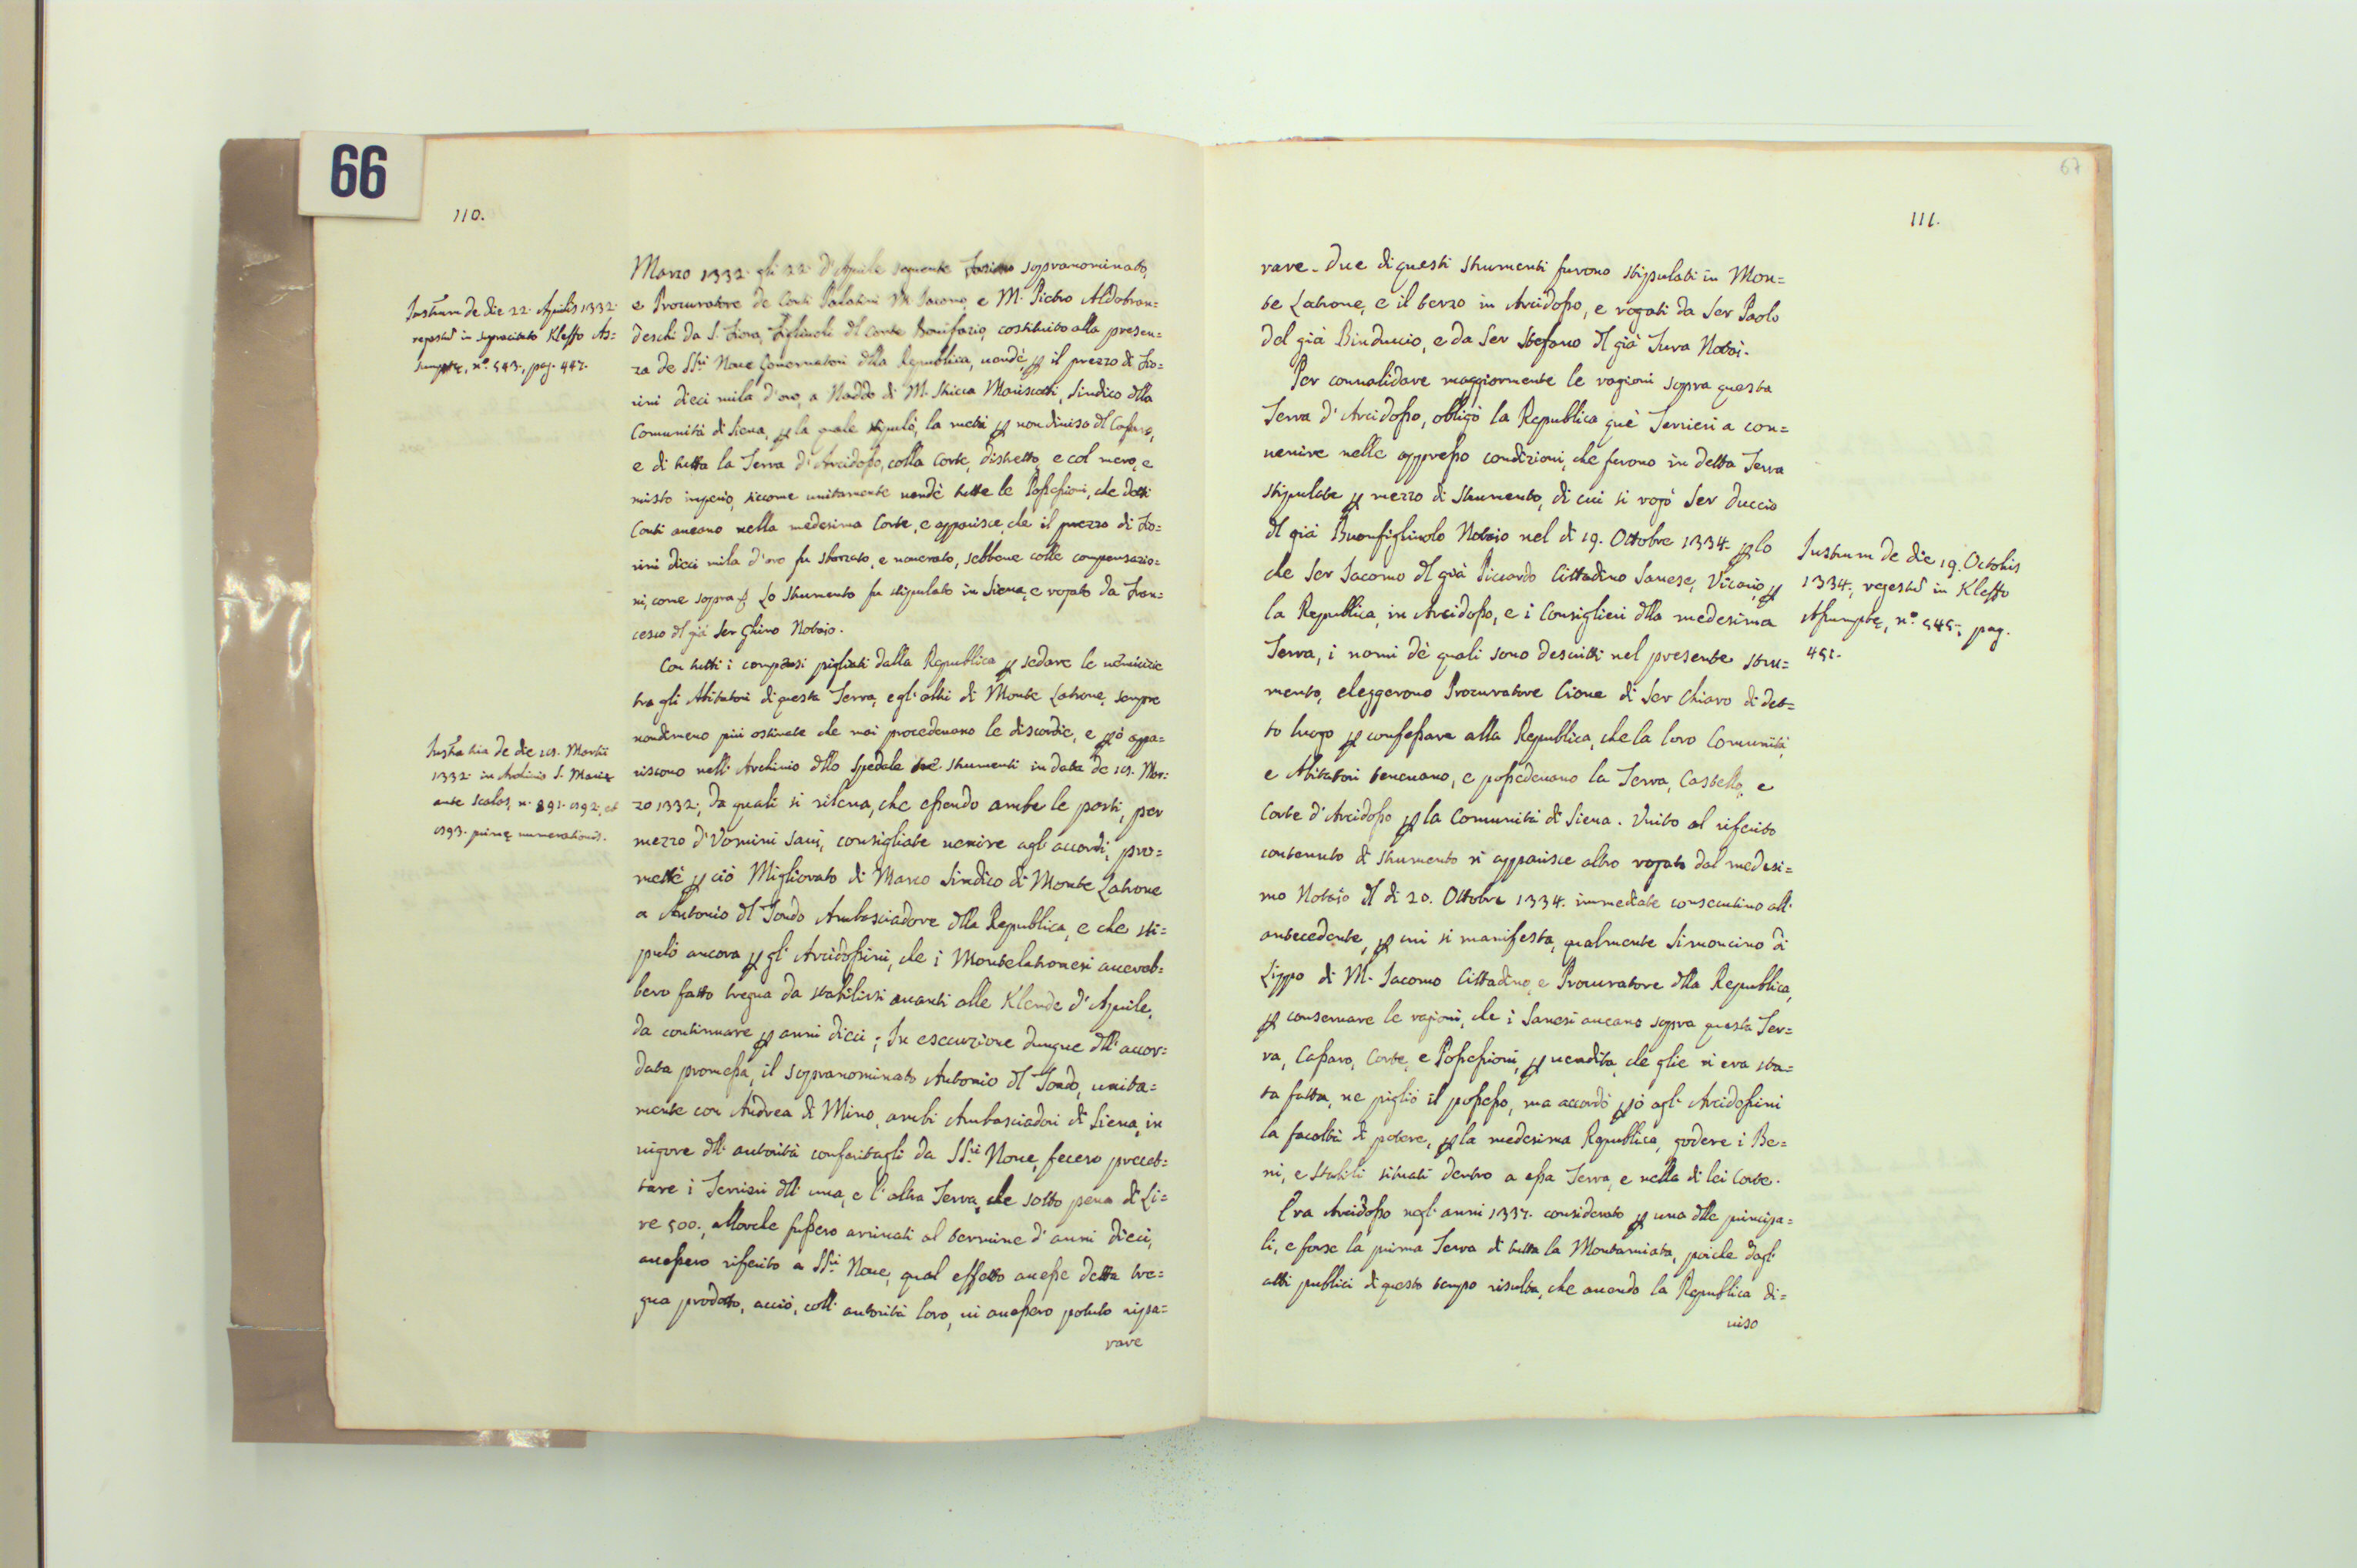 66
110.
Marzo 1332. gli 22. d'Aprile seguente sopranominato,
e Procuratore de Conti Palatini M. Jacomo, e M. Pietro Aldobran=
deschi da S. Fiora, Figliuoli dl Conte Bonifazio, costituito alla presen=
za de SSri Noue Gouernatori dlla Republica, uendè, p il prezzo di Fio=
rini dieci mila d'oro, a Naddo di M. Stricca Mariscotti, Sindico dlla
Comunità di Siena, p la quale stipulò, la metà p non diuisa dl Cassaro,
e di tutta la Terra d'Arcidosso, colla Corte, distretto, e col mero, e
misto impero, siccome unitamente uendè tutte le Possessioni, che detti
Conti aueano nella medesima Corte, e apparisce, che il prezzo di Fio=
rini dieci mila d'oro fu sborzato, e numerato, sebbene colle compensazio=
ni, come sopra Lo Strumento fu stipulato in Siena, e rogato da Fran=
cesco dl già Ser Ghino Notaio.
Con tutti i compensi pigliati dalla Republica p sedare le nemicizie
tra gli Abitatori di questa Terra, e gl'altri di Monte Latrone, sempre
nondimeno più ostinate che mai procedeuano le discordie, e pò appa=
riscono nell'Archiuio dllo Spedale tre strumenti in data de 15. Mar:
zo 1332., da quali si rileua, che essendo ambe le parti, per
mezzo d'Vomini Saui, consigliate uenire agl'accordi, pro=
messe p ciò Migliorato di Marco Sindico di Monte Latrone
a Antonio dl Tondo Ambasciadore dlla Republica, e che sti=
pulò ancora p gl'Arcidossini, che i Montelatronesi auereb=
bero fatto tregua da stabilirsi auanti alle Klende d'Aprile,
da continuare p anni dieci; In esecuzione dunque dll'accor=
data promessa, il sopranominato Antonio dl Tondo, unita=
mente con Andrea di Mino, ambi Ambasciadori di Siena, in
uigore dll'autorità conferitagli da SSri Noue, fecero precet=
tare i Terrieri dll'una, e l'altra Terra, che sotto pena di Li=
re 500., allorche fussero arriuati al termine d'anni dieci,
auessero riferito a SSri Noue, qual effetto auesse detta tre=
gua prodotto, acciò, coll'autorità loro, ui auessero potuto ripa=
rare
Instrum de die 22. Aprilis 1332.
regestũ in supracitato Kleffo As=
sumptę, n.o 543., pag. 447.
Instra tria de die 15. Martii
1332. in Archiuio S. Marię
ante Scalas, n. 891. 892, et
893. primę numerationis.
67
111.
rare. Due di questi Strumenti furono stipulati in Mon=
te Latrone, e il terzo in Arcidosso, e rogati da Ser Paolo
del già Binduccio, e da Ser Stefano dl già Tura Notai.
Per conualidare maggiormente le ragioni sopra questa
Terra d'Arcidosso, obligò la Republica que' Terrieri a con=
uenire nelle appresso condizioni, che furono in detta Terra
stipulate p mezzo di Strumento, di cui si rogò Ser Duccio
dl già Buonfigliuolo Notaio nel dì 19. Ottobre 1334. p lo
che Ser Jacomo dl già Piccardo Cittadino Sanese, Vicario, p
la Republica, in Arcidosso, e i Consiglieri dlla medesima
Terra, i nomi de' quali sono descritti nel presente stru=
mento, eleggerono Procuratore Cione di Ser Chiaro di det=
to luogo p confessare alla Republica, che la loro Comunità,
e Abitatori teneuano, e possedeuano la Terra, Castello, e
Corte d'Arcidosso p la Comunità di Siena. Vnito al riferito
contenuto di strumento ui apparisce altro rogato dal medesi=
mo Notaio dl dì 20. Ottobre 1334. immediate consecutiuo all'
antecedente, p cui si manifesta, qualmente Simoncino di
Lippo di M. Jacomo Cittadino, e Procuratore dlla Republica,
p conseruare le ragioni, che i Sanesi aueano sopra questa Ter=
ra, Cassaro, Corte, e Possessioni, p uendita, che glie n'era sta=
ta fatta, ne pigliò il possesso, ma accordò pò agl'Arcidossini
la facoltà di potere, p la medesima Republica, godere i Be=
ni, e Stabili situati dentro a essa Terra, e nella di lei Corte.
Era Arcidosso negl'anni 1337. considerato p una dlle principa=
li, e forse la prima Terra di tutta la Montamiata, poiche dagl'
atti publici di questo tempo risulta, che auendo la Republica di=
uiso
Instrum de die 19. Octobris
1334., regestũ in Kleffo
Assumptę, n.o 545., pag.
451.